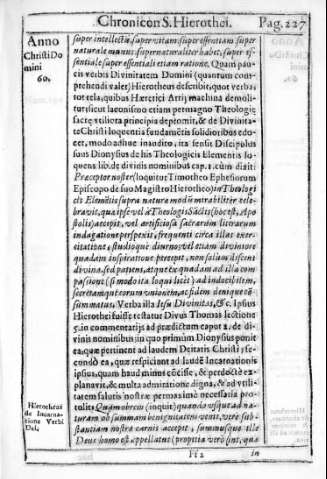 Chronicon S. Hierothei. Pag. 227
Anno
Christi Do
mini
60.
super intellectũ, super vitam, super essentiam super
naturale manus supernaturaliter habet, super es-
sentiale super essentiali etiam ratione. Quam pau-
cis verbis Divinitatem Domini (quantum com-
prehendi valet) Hierotheus describit, quot verba
tot tela, quibus Hæretici Artij machina demoli-
tur sicut laconismo etiam permagno Theologiæ
sacræ vtiliora principia depromit, & de Divinita-
te Christi loquentia fundamẽta solidiora
cet, modo adhuc inaudito, ita sensit Discipulus
suus Dionysius de his Theologicis Elementis lo
quens lib. de divinis nominibus cap. 2. cum dixit:
Præceptor noster (loquitur Timotheo Ephesiorum
Episcopo de suo Magistro Hierotheo) in Theologi
cis Elemẽtis supra naturæ modũ mirabiliter cele-
bravit, qua ipse vel à Theologis Sãctis (hoc est, Apo
stolis) accepit, vel artificiosa sacrarum literarum
indagatione perspexit, frequenti circa illas exer-
citatione, studioque diurno, vel etiam diviniore
quadam inspiratione precepit, non solum discens
divina, sed patiens, atque ex quadam ad illa com
passione (si modo ita loqui licet) ad indocibilem,
secretamque eorum unionẽ, ac fidem denique cõ-
summatus. Verba illa Iesu Divinitas, &c. Ipsius
Hierothei fuisse testatur Divus Thomas lectione
5. in commentarijs ad prædictum caput 2. de di-
vinis nominibus in quo primùm Dionysius ponit
ea, quæ pertinent ad laudem Deitatis Christi; se-
cundò ea, quæ respiciunt ad laudẽ Incarnationis
ipsius, quam haud minus cõcisè, & perdoctè ex-
planavit, & multa admiratione digna, & ad vtili-
tatem salutis nostræ permaximè necessaria pro-
tulit: Quamobrem (inquit) quando vsque ad na-
turam ob summam benignitatem venit, verè sub-
stantiam nostra carnis accepit, summusque ille
Deus homo est appellatus (propitia verò sint, quæ
Hierotheus
de Incarna-
tione Verbi
Dei.
Ff 2
in